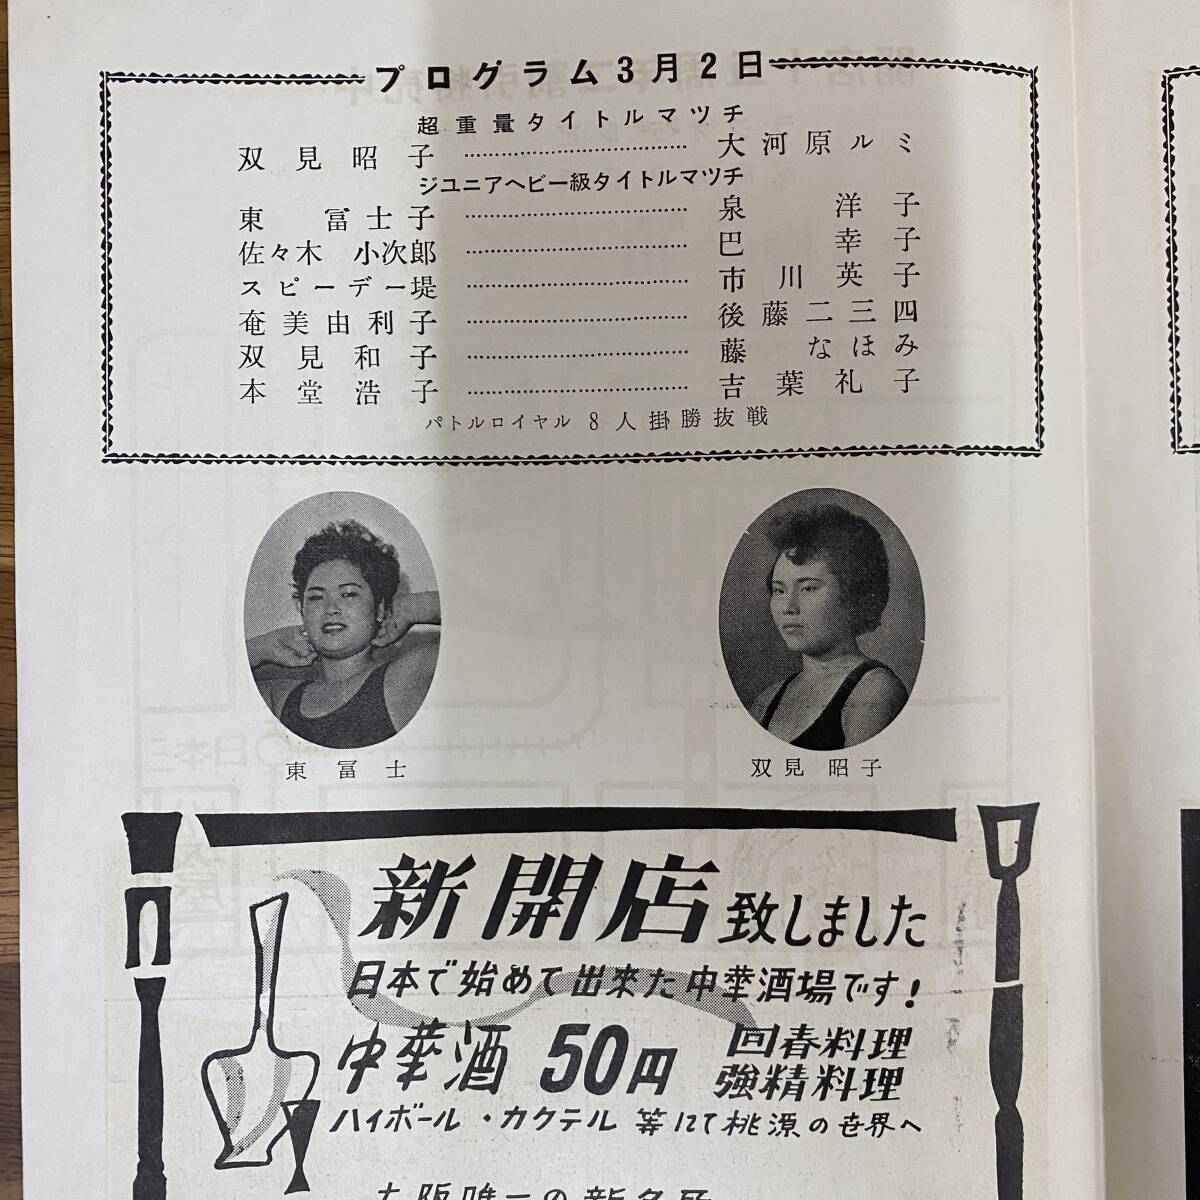 プログラム3月2日
超重量タイトルマツチ
双見昭子 大河原ルミ
ジユニアヘビー級タイトルマツチ
東冨士子 泉洋子
佐々木小次郎 巴幸子
スピーデー堤 市川英子
奄美由利子 後藤二三四
双見和子 藤なほみ
本堂浩子 吉葉礼子
パトルロイヤル 8人掛勝抜戦
東冨士
双見昭子
新開店致しました
日本で始めて出来た中華酒場です!
中華酒 50円
回春料理
強精料理
ハイボール・カクテル 等にて桃源の世界へ